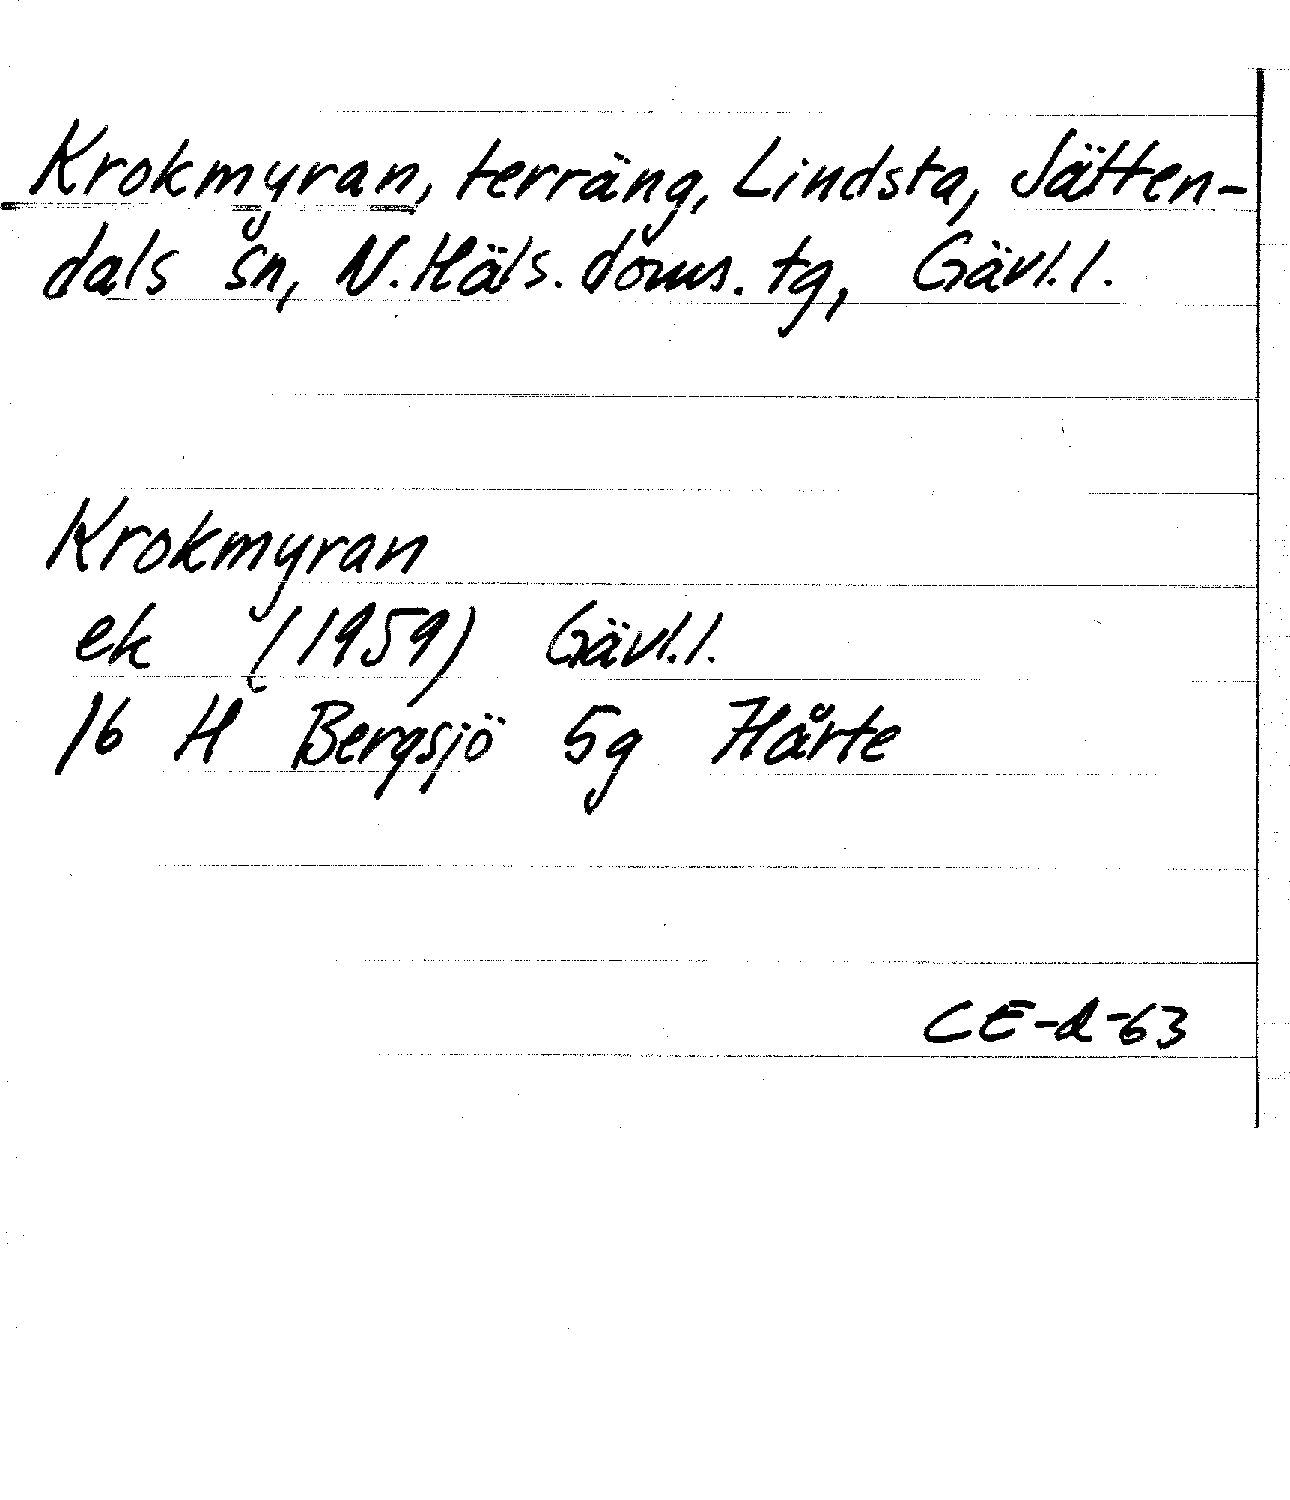 Krokmyran, terräng, Lindsta, Jätten-
dals sn, N. Häls. doms. tg, Gävl. l.
Krokmyran
ek (1959) Gävl. l.
16 H Bergsjö 5g Hårte
CE-d-63